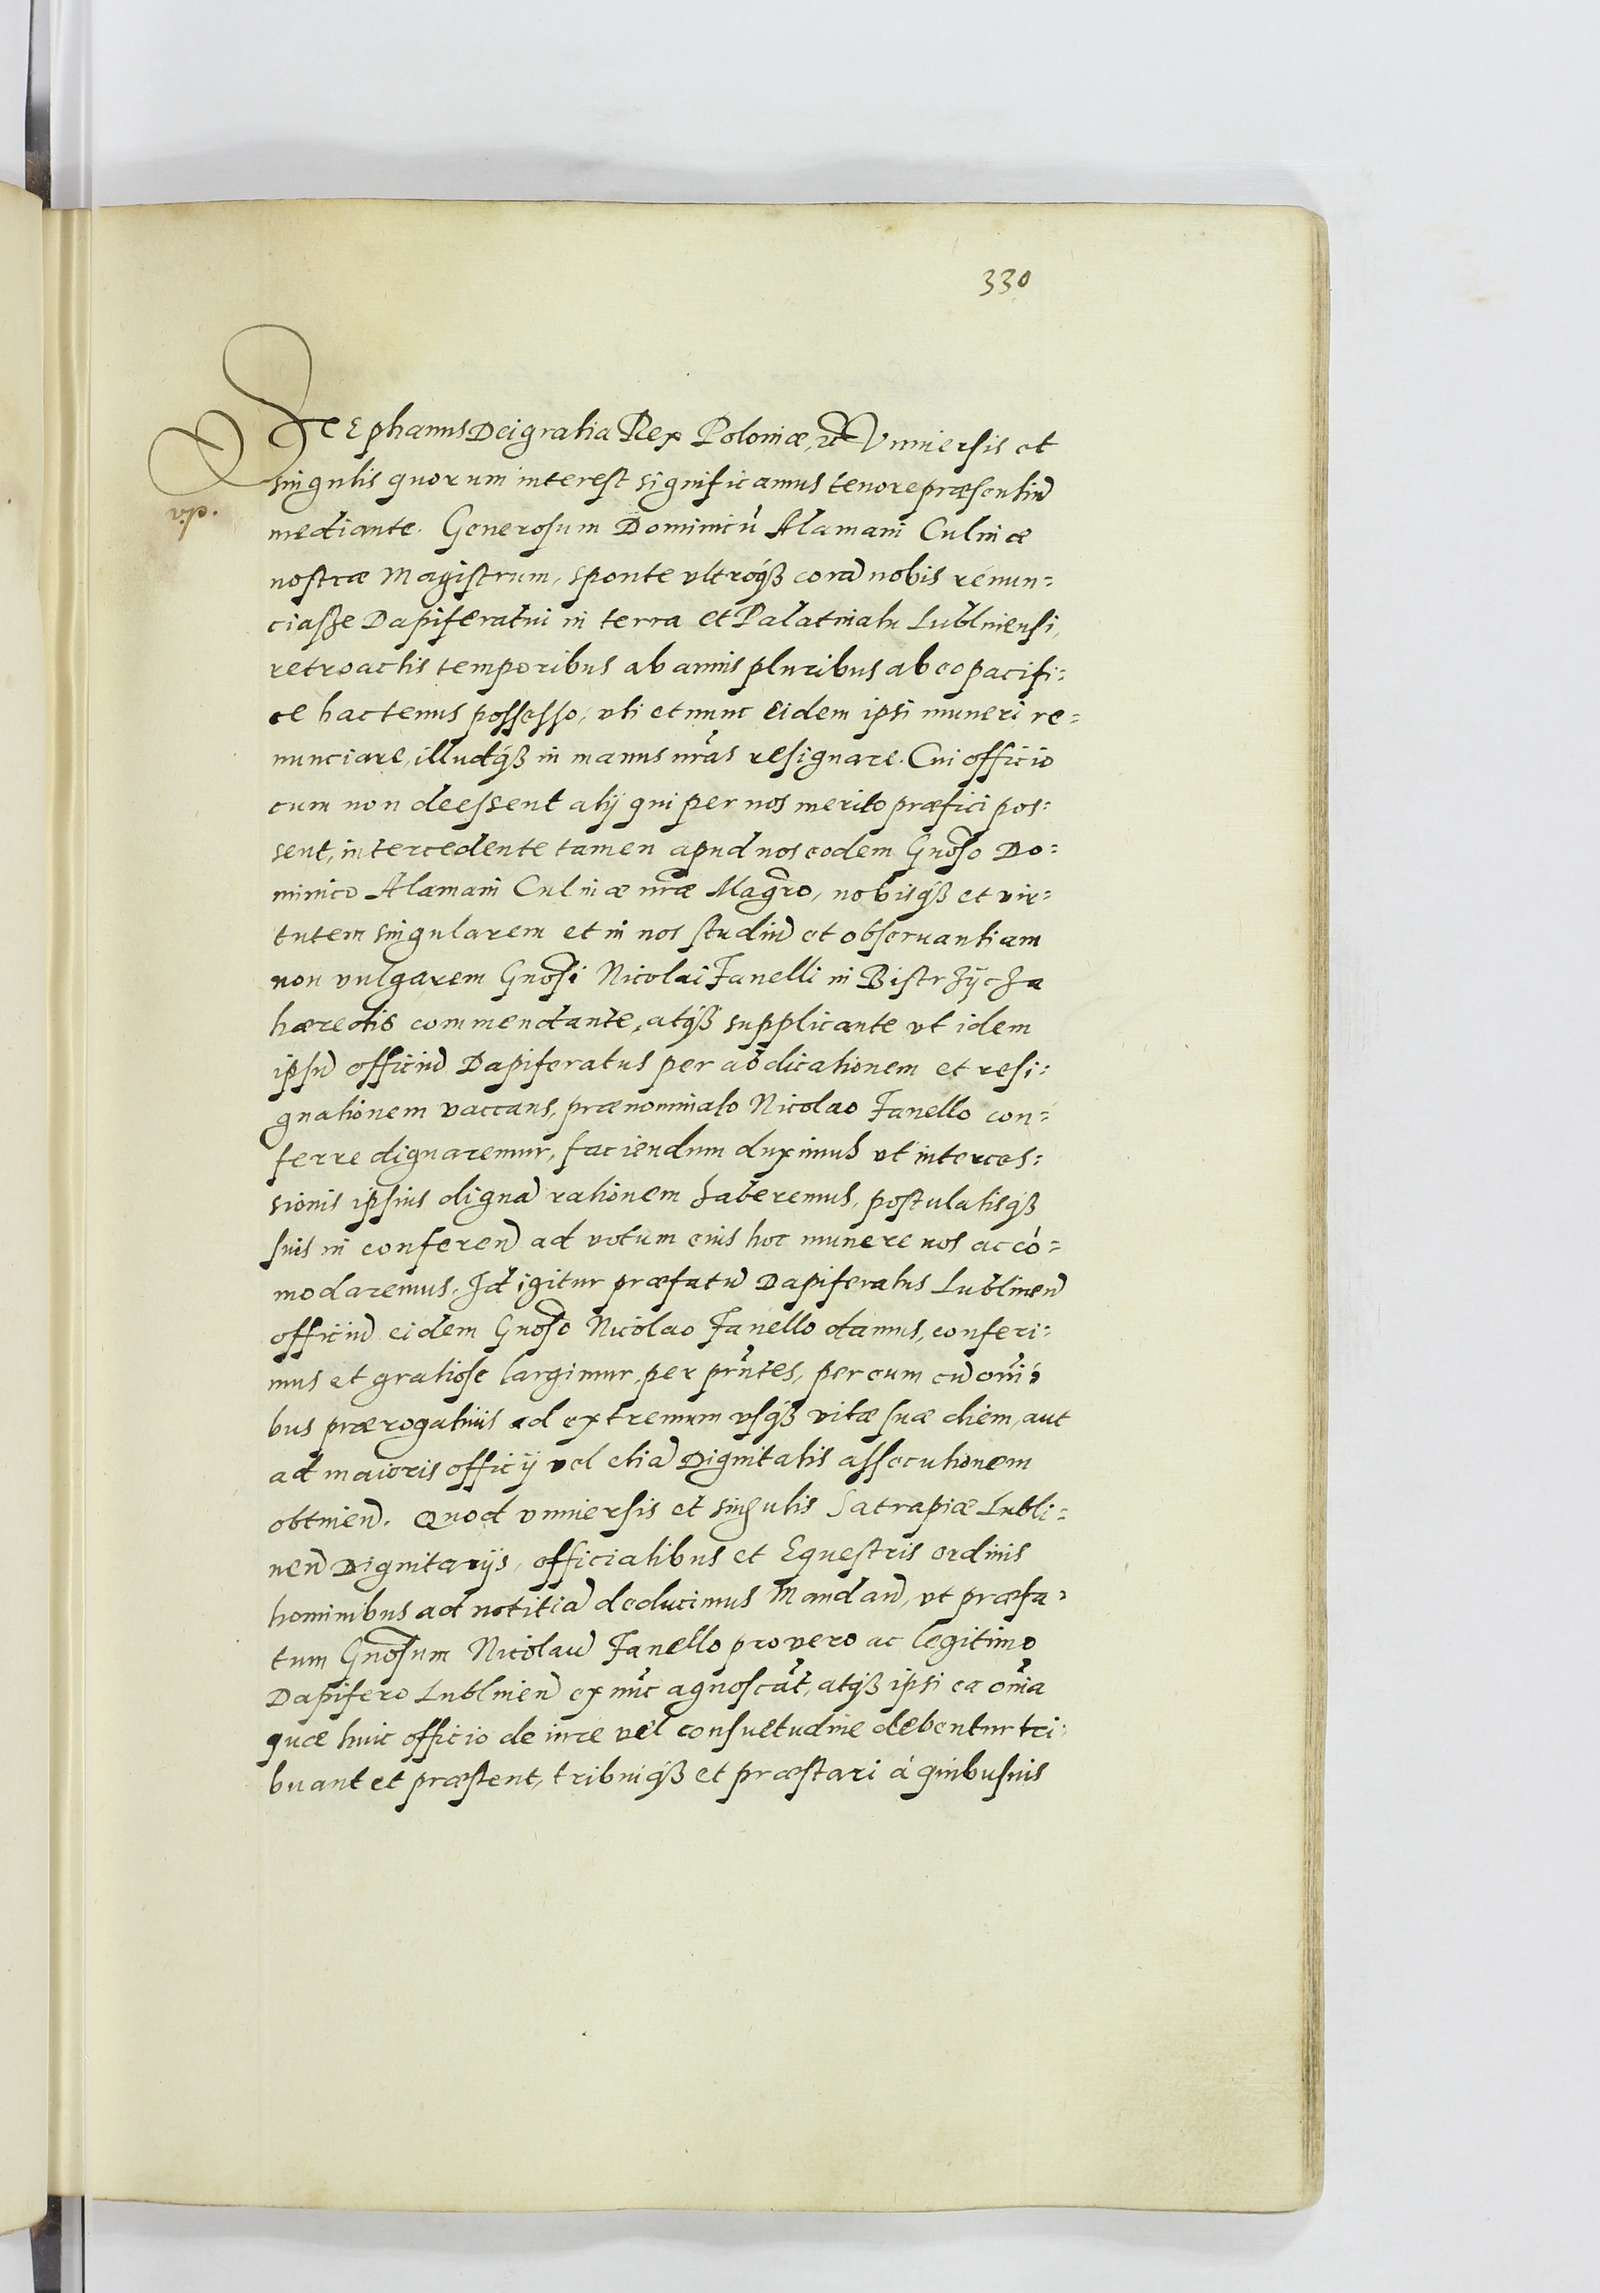 330
Stephanus Dei gratia Rex Poloniæ, etc Vniuersis et
singulis quorum interest significamus tenore præsentiũ
mediante. Generosum Dominicũ Alamani Culinæ
nostræ Magistrum, sponte vltroq́ꝫ corã nobis renun=
ciasse Dapiferatui in terra et Palatinatu Lublinensi,
retroactis temporibus ab annis pluribus ab eo pacifi=
ce hactenus possesso, vti et nunc eidem ipsi muneri re=
nunciare, illudq́ꝫ in manus nr̃as resignare. Cui officio
cum non deessent alij qui per nos merito præfici pos=
sent, intercedente tamen apud nos eodem Gñoso Do=
minico Alamani Culinæ nr̃æ Magr̃o, nobisq́ꝫ et vir=
tutem singularem et in nos studiũ et obseruantiam
non vulgarem Gñosi Nicolai Fanelli in Bistrzÿcza
hæredis commendante, atq́ꝫ supplicante vt idem
ipsũ officiũ Dapiferatus per abdicationem et resi=
gnationem vaccans, prænominato Nicolao Fanello con=
ferre dignaremur, faciendum duximus vt interces=
sionis ipsius dignã rationem haberemus, postulatisq́ꝫ
suis in conferen̄ ad votum eius hoc munere nos accõ=
modaremus. Id igitur præfatũ Dapiferatus Lublinen̄
officiũ eidem Gñoso Nicolao Fanello damus, conferi=
mus et gratiose largimur, per pr̃ntes, per eum cũ om̃i=
bus prærogatiuis ad extremum vsq́ꝫ vitæ suæ diem, aut
ad maioris officij vel etiã Dignitatis assecutionem
obtinen̄. Quod vniuersis et singulis Satrapiæ Lubli=
nen̄ Dignitarijs, officialibus et Equestris ordinis
hominibus ad notitiã deducimus Mandan̄, vt præfa=
tum Gñosum Nicolaũ Fanello pro vero ac legitimo
Dapifero Lublinen̄ ex nũc agnoscãt, atq́ꝫ ipsi ea om̃ia
quæ huic officio de iure vel consuetudine debentur tri=
buant et præstent, tribuiq́ꝫ et præstari à quibusuis